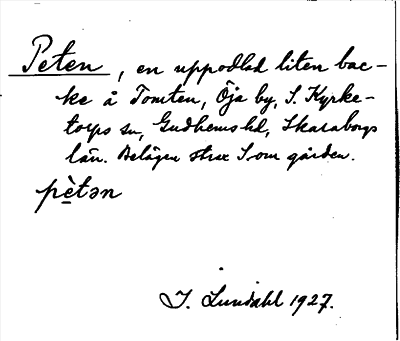 Peten, en uppodlad liten bac-
ke å Tomten, Öja by, S. Kyrke-
torps sn, Gudhems hd, Skaraborgs
län. Belägen strax S om gården.
pètən
I. Lundahl 1927.